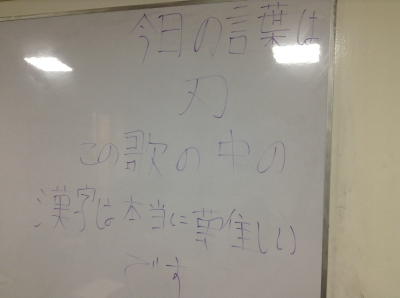 今日の言葉は
刃
この歌の中の
漢字は本当に難しい
です